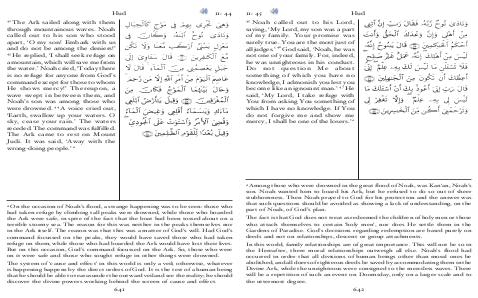 Hud
11: 44
⁴² The Ark sailed along with them
through mountainous waves. Noah
called out to his son who stood
apart, 'O my son! Embark with us
and do not be among the deniers!'
⁴³ He replied, 'I shall seek refuge on
a mountain, which will save me from
the water.' Noah cried, 'Today there
is no refuge for anyone from God's
command except for those to whom
He shows mercy!' Thereupon, a
wave swept in between them, and
Noah's son was among those who
were drowned. ⁴⁴ A voice cried out,
'Earth, swallow up your waters. O
sky, cease your rain.' The waters
receded. The command was fulfilled.
The Ark came to rest on Mount
Judi. It was said, 'Away with the
wrong-doing people.'ᵃ
وَهِيَ تَجْرِى بِهِمْ فِى مَوْجٍ كَٱلْجِبَالِ
وَنَادَىٰ نُوحٌ ٱبْنَهُۥ وَكَانَ فِى
مَعْزِلٍ يَـٰبُنَىَّ ٱرْكَب مَّعَنَا وَلَا تَكُن
مَّعَ ٱلْكَـٰفِرِينَ قَالَ سَـَٔاوِىٓ إِلَىٰ
جَبَلٍ يَعْصِمُنِى مِنَ ٱلْمَآءِ قَالَ لَا
عَاصِمَ ٱلْيَوْمَ مِنْ أَمْرِ ٱللَّهِ إِلَّا مَن رَّحِمَ
وَحَالَ بَيْنَهُمَا ٱلْمَوْجُ فَكَانَ مِنَ
ٱلْمُغْرَقِينَ وَقِيلَ يَـٰٓأَرْضُ ٱبْلَعِى
مَآءَكِ وَيَـٰسَمَآءُ أَقْلِعِى وَغِيضَ ٱلْمَآءُ
وَقُضِىَ ٱلْأَمْرُ وَٱسْتَوَتْ عَلَى ٱلْجُودِىِّ
وَقِيلَ بُعْدًا لِّلْقَوْمِ ٱلظَّـٰلِمِينَ
ᵃ On the occasion of Noah's flood, a strange happening was to be seen: those who
had taken refuge by climbing tall peaks were drowned, while those who boarded
the Ark were safe, in spite of the fact that the boat had been tossed about on a
terrible stormy sea. The reason for this was neither in the peaks themselves nor
in the Ark itself. The reason was that this was a matter of God's will. Had God's
command focused on the peaks, they would have saved those who had taken
refuge on them, while those who had boarded the Ark would have lost their lives.
But on this occasion, God's command focused on the Ark. So, those who were
on it were safe and those who sought refuge in other things were drowned.
The system of 'cause and effect' in this world is only a veil, otherwise, whatever
is happening happens by the direct orders of God. It is the test of a human being
that he should be able to run asunder the outward veil and see the reality; he should
discover the divine powers working behind the screen of cause and effect.
642
11: 47
Hud
⁴⁵ Noah called out to his Lord,
saying, 'My Lord, my son was a part
of my family. Your promise was
surely true. You are the most just of
all judges.' ⁴⁶ God said, 'Noah, he was
not one of your family. For, indeed,
he was unrighteous in his conduct.
Do not question Me about
something of which you have no
knowledge; I admonish you lest you
become like an ignorant man.' ⁴⁷ He
said, 'My Lord, I take refuge with
You from asking You something of
which I have no knowledge. If You
do not forgive me and show me
mercy, I shall be one of the losers.'ᵃ
وَنَادَىٰ نُوحٌ رَّبَّهُۥ فَقَالَ رَبِّ إِنَّ ٱبْنِى
مِنْ أَهْلِى وَإِنَّ وَعْدَكَ ٱلْحَقُّ وَأَنتَ
أَحْكَمُ ٱلْحَـٰكِمِينَ قَالَ يَـٰنُوحُ إِنَّهُۥ
لَيْسَ مِنْ أَهْلِكَ إِنَّهُۥ عَمَلٌ غَيْرُ صَـٰلِحٍ
فَلَا تَسْـَٔلْنِ مَا لَيْسَ لَكَ بِهِۦ عِلْمٌ إِنِّىٓ
أَعِظُكَ أَن تَكُونَ مِنَ ٱلْجَـٰهِلِينَ
قَالَ رَبِّ إِنِّىٓ أَعُوذُ بِكَ أَنْ أَسْـَٔلَكَ مَا
لَيْسَ لِى بِهِۦ عِلْمٌ وَإِلَّا تَغْفِرْ لِى
وَتَرْحَمْنِىٓ أَكُن مِّنَ ٱلْخَـٰسِرِينَ
ᵃ Among those who were drowned in the great flood of Noah, was Kan'an, Noah's
son. Noah wanted him to board his Ark, but he refused to do so out of sheer
stubbornness. Then Noah prayed to God for his protection and the answer was
that such questions should be avoided as showing a lack of understanding, on the
part of Noah, of God's plan.
The fact is that God does not treat as redeemed the children of holy men or those
who attach themselves to certain 'holy men', nor does He settle them in the
Gardens of Paradise. God's decisions regarding redemption are based purely on
deeds and not on relationships, descent or group attachments.
In this world, family relationships are of great importance. This will not be so in
the Hereafter, where moral relationships outweigh all else. Noah's flood had
occurred in order that all divisions of human beings other than moral ones be
abolished, and all doers of righteous deeds be saved by accommodating them in the
Divine Ark, while the unrighteous were consigned to the merciless waves. There
will be a repetition of such an event on Doomsday, only on a larger scale and to
the uttermost degree.
642